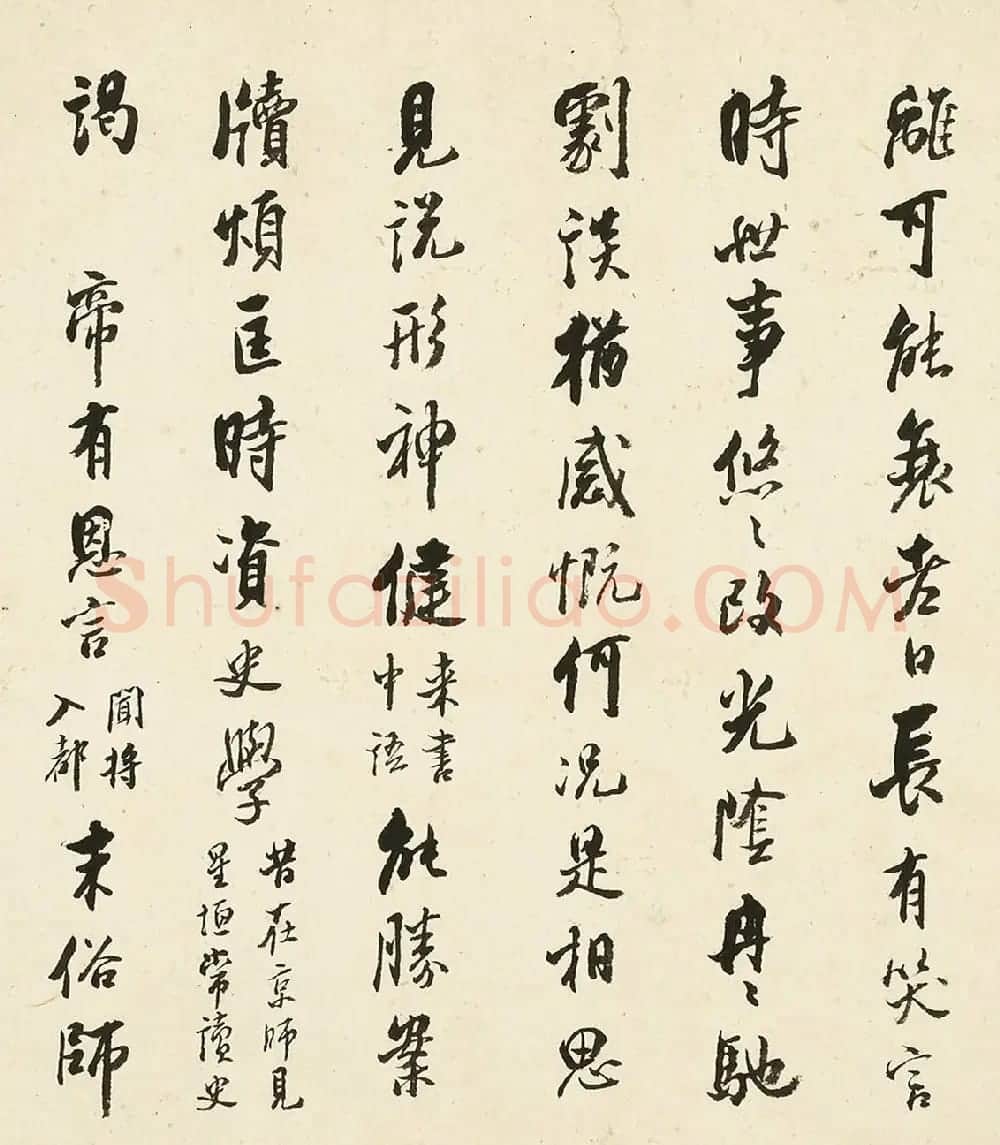 離可能無老日長有笑言
時世事悠〻改光陰冉〻馳
劇談猶感慨何況是相思
見説形神健来書中語能勝案
牘煩匡時資史學昔在京師見星垣常讀史
謁帝有恩言聞將入都末俗師
Shufaziliao.COM